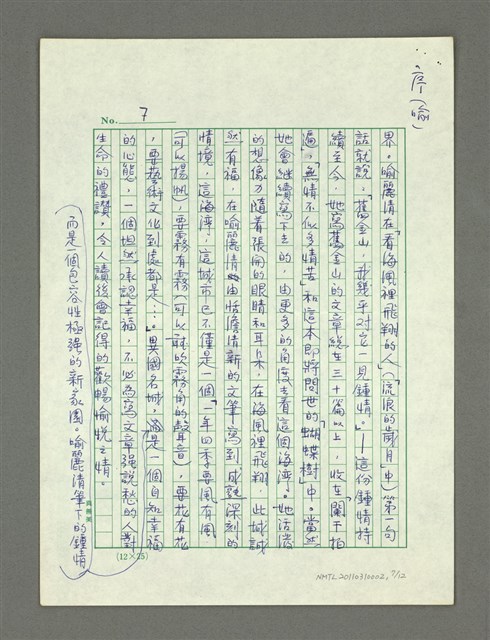 序（喻）
No. 7
界。喻麗清在「看海風裡飛翔的人」（「流浪的歲月」中）第一句
話就說：「舊金山，我幾乎對它一見鍾情。」——這份鍾情持
續至今，她寫舊金山的文章總在三十篇以上，收在「闌干拍
遍」、「無情不似多情苦」和這本即將問世的「蝴蝶樹」中。當然
她會繼續寫下去的，由更多的角度去看這個海灣。她活潑
的想像力隨着張開的眼睛和耳朵，在海風裡飛翔，此城誠
然有福，在喻麗情由恬澹清新的文筆寫到成熟深刻的
情境，這海灣，這城市已不僅是一個「一年四季要風有風
（可以揚帆），要霧有霧（可以聽霧角的聲音），要花有花
，要藝術文化到處都是……。」異國名城，是一個自知幸福
的心態，一個坦然承認幸福，不必為寫文章強說愁的人對
生命的禮讚。令人讀後會記得的歡暢愉悅之情。
而是一個包容性極強的新家園。喻麗清筆下的鍾情
（12×25）
NMTL20110310002, 7/12